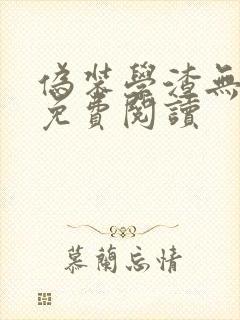 偽裝學渣無
免費閱讀
慕蘭忘情